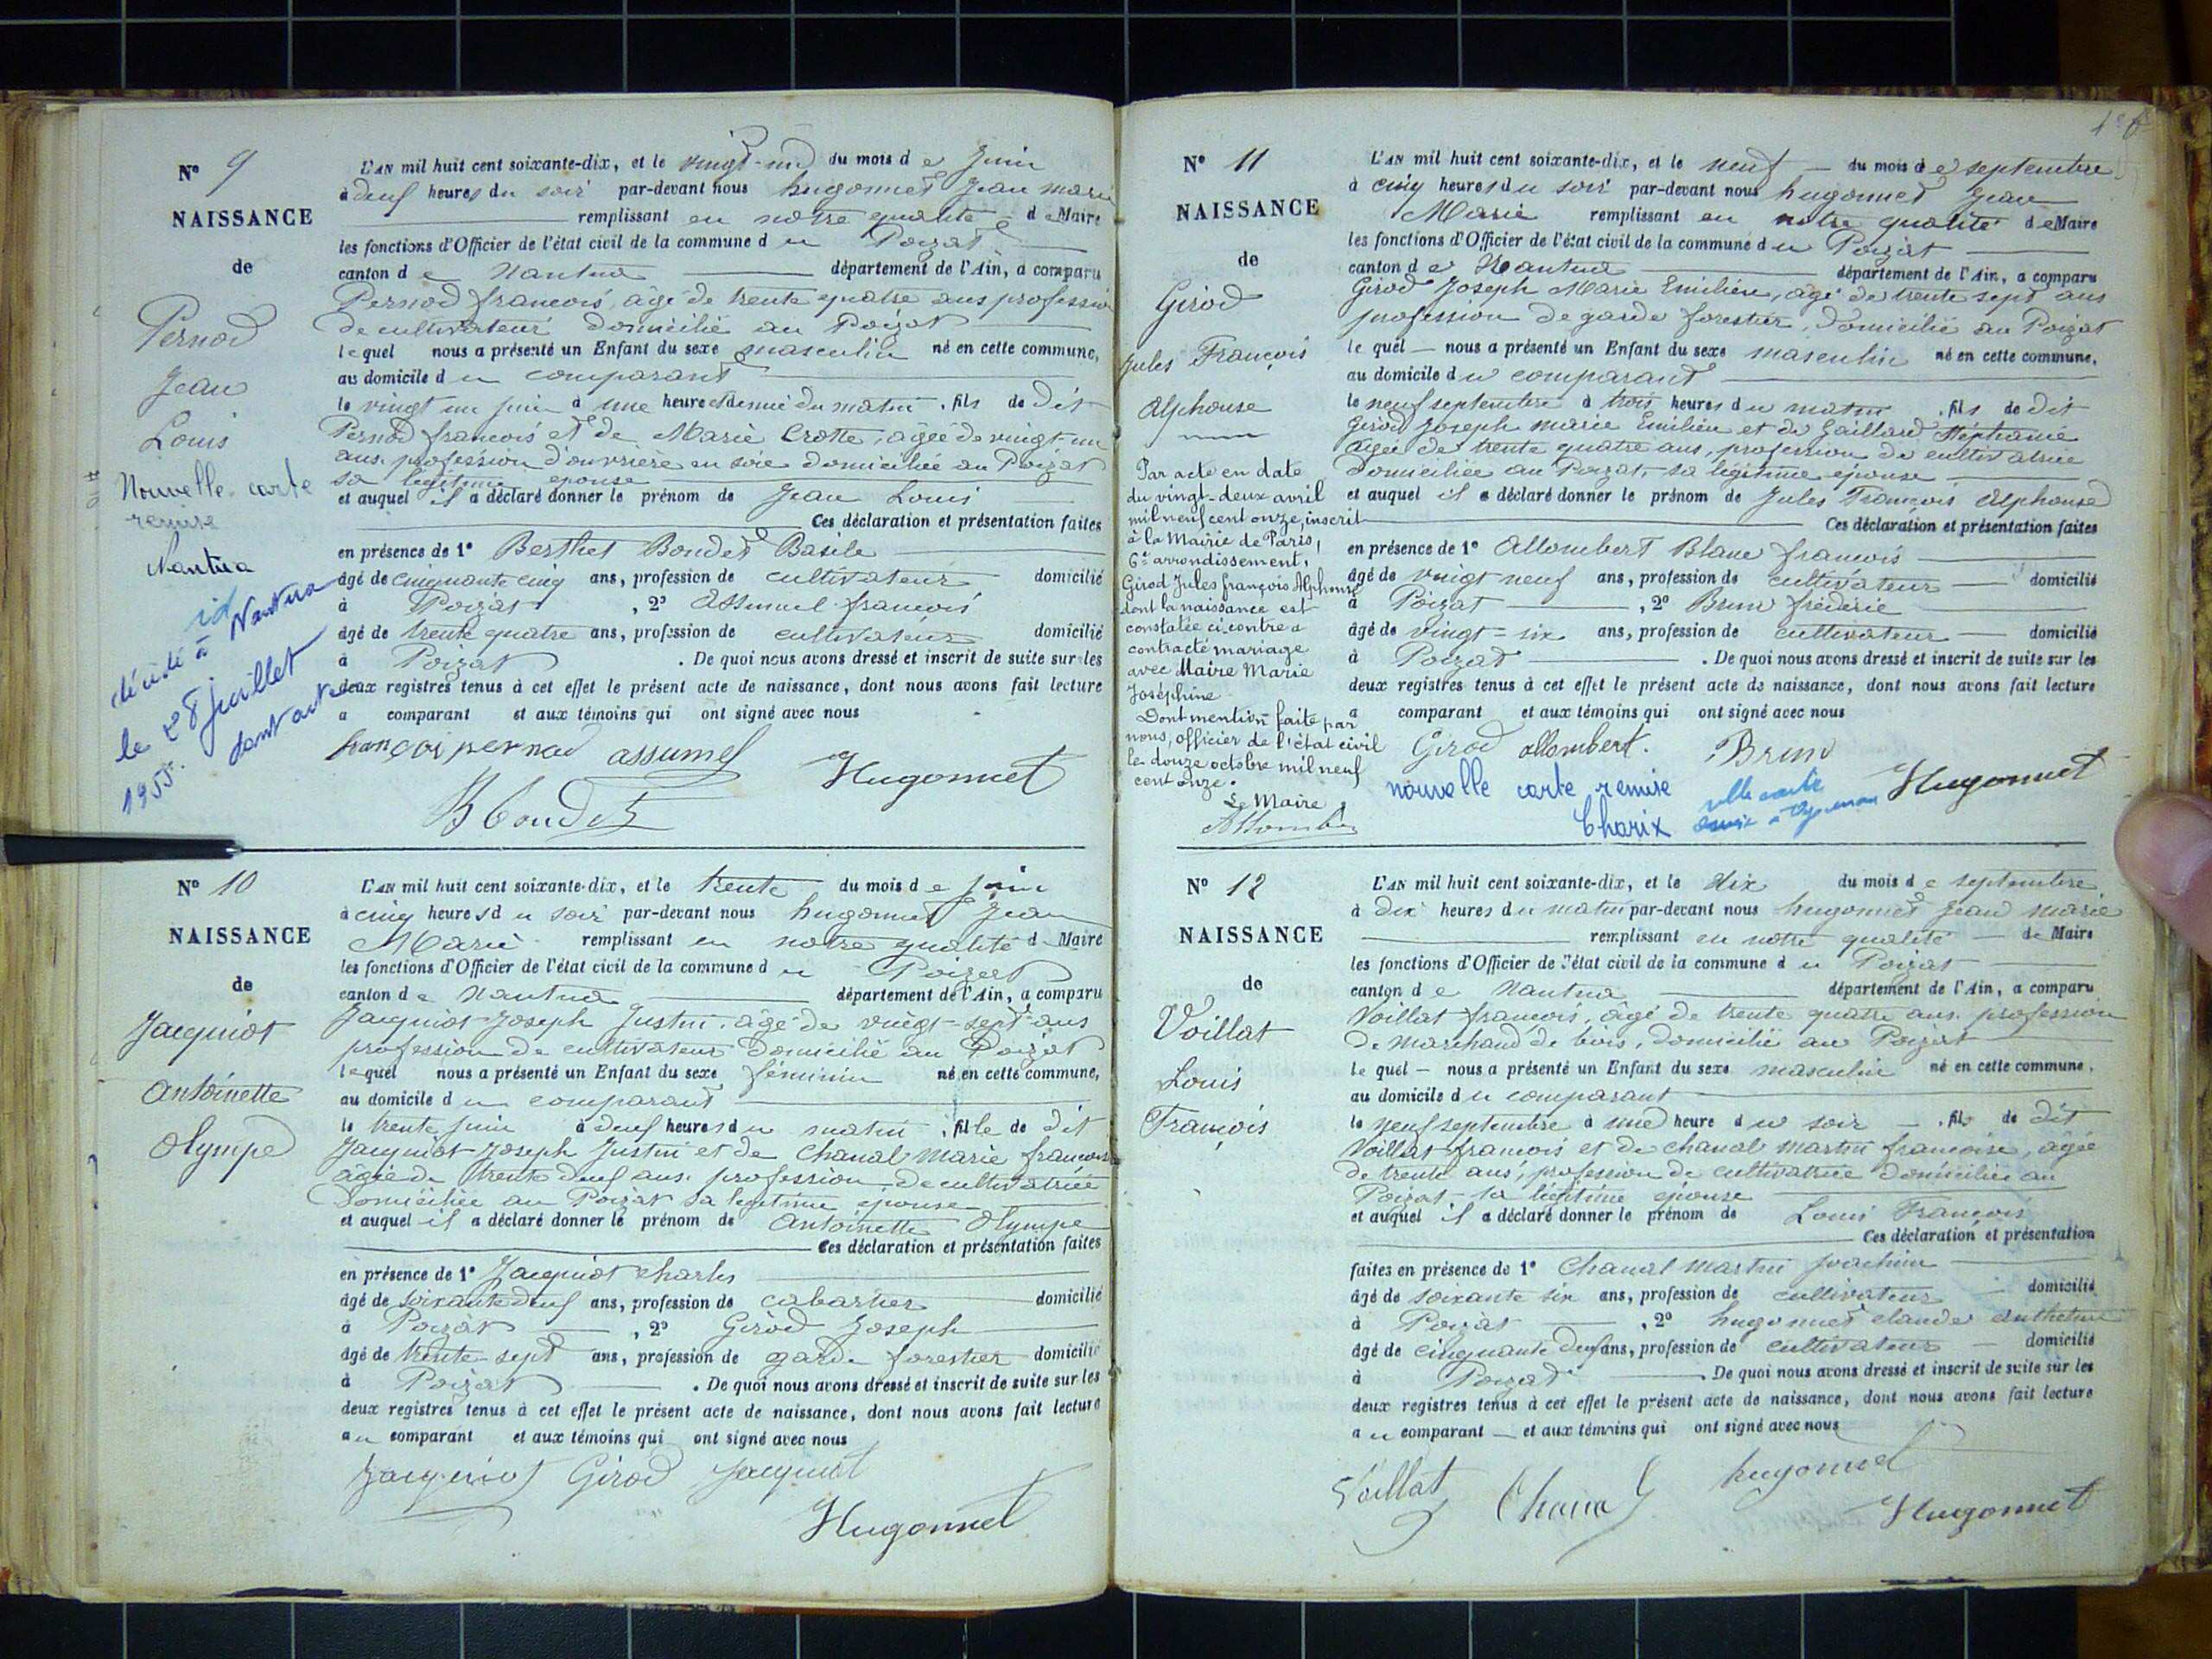 Nº 9
NAISSANCE
de
Pernod
Jean
Louis
Nouvelle carte
remise
Nantua
id
décédé à Nantua
le 28 juillet
1955. dont acte
L'AN mil huit cent soixante-dix, et le vingt-un du mois de Juin
à deuf heures du soir par-devant nous hugonnet Jean marie
remplissant en notre qualité de Maire
les fonctions d'Officier de l'état civil de la commune du Poizat
canton de Nantua département de l'Ain, a comparu
Pernod francois, âgé de trente quatre ans profession
de cultivateur domicilié au Poizat
lequel nous a présenté un Enfant du sexe masculin né en cette commune,
au domicile du comparant
le vingt un juin à une heure et demie du matin, fils de dit
Pernod francois et de Marie Crotte, âgée de vingt-un
ans, profession d'ouvrière en soie domiciliée au Poizat
sa légitime epouse
et auquel il a déclaré donner le prénom de Jean Louis
Ces déclaration et présentation faites
en présence de 1º Berthet Bondet Basile
âgé de cinquante cinq ans, profession de cultivateur domicilié
à Poizat, 2º Assumel francois
âgé de trente quatre ans, profession de cultivateur domicilié
à Poizat. De quoi nous avons dressé et inscrit de suite sur les
deux registres tenus à cet effet le présent acte de naissance, dont nous avons fait lecture
a comparant et aux témoins qui ont signé avec nous
françois pernod assumel Hugonnet
B bondet
Nº 10
NAISSANCE
de
Jacquiot
Antoinette
Olympe
L'AN mil huit cent soixante-dix, et le trente du mois de juin
à cinq heures du soir par-devant nous hugonnet Jean
Marie remplissant en notre qualité d Maire
les fonctions d'Officier de l'état civil de la commune du Poizat
canton de Nantua département de l'Ain, a comparu
Jacquiot Joseph Justin, âgé de vingt-sept ans
profession de cultivateur domicilié au Poizat
lequel nous a présenté un Enfant du sexe féminin né en cette commune,
au domicile du comparant
le trente juin à deuf heures du matin, fille de dit
Jacquiot Joseph Justin et de Chanal Marie francoise
âgée de trente deuf ans, profession de cultivatrice
domiciliée au Poizat sa legitime epouse
et auquel il a déclaré donner le prénom de Antoinette Olympe
Ces déclaration et présentation faites
en présence de 1º Jacquiot charles
âgé de soixante deuf ans, profession de cabartier domicilié
à Poizat, 2º Girod Joseph
âgé de trente-sept ans, profession de garde forestier domicilié
à Poizat. De quoi nous avons dressé et inscrit de suite sur les
deux registres tenus à cet effet le présent acte de naissance, dont nous avons fait lecture
au comparant et aux témoins qui ont signé avec nous
Jacquiot Girod Jacquiot
Hugonnet
Nº 11
NAISSANCE
de
Girod
Jules François
Alphonse
Par acte en date
du vingt-deux avril
mil neuf cent onze, inscrit
à la Mairie de Paris,
6e arrondissement,
Girod Jules françois Alphonse
dont la naissance est
constatée ci-contre a
contracté mariage
avec Maire Marie
Joséphine
Dont mention faite par
nous, officier de l'état civil
le douze octobre mil neuf
cent onze.
Le Maire,
L'AN mil huit cent soixante-dix, et le neuf du mois de septembre
à cinq heures du soir par-devant nous hugonnet Jean
Marie remplissant en notre qualité de Maire
les fonctions d'Officier de l'état civil de la commune du Poizat
canton de Nantua département de l'Ain, a comparu
Girod Joseph Marie Emilien, âgé de trente sept ans
profession de garde forestier, domicilié au Poizat
lequel nous a présenté un Enfant du sexe masculin né en cette commune,
au domicile du comparant
le neuf septembre à trois heures du matin, fils de dit
Girod Joseph marie Emilien et de Gaillard Stéphanie
âgée de trente quatre ans, profession de cultivatrice
domiciliée au Poizat, sa légitime epouse
et auquel il a déclaré donner le prénom de Jules François Alphonse
Ces déclaration et présentation faites
en présence de 1º Allombert Blanc francois
âgé de vingt neuf ans, profession de cultivateur domicilié
à Poizat, 2º Brun fréderic
âgé de vingt-six ans, profession de cultivateur domicilié
à Poizat. De quoi nous avons dressé et inscrit de suite sur les
deux registres tenus à cet effet le présent acte de naissance, dont nous avons fait lecture
a comparant et aux témoins qui ont signé avec nous
Girod allombert. Brun
Hugonnet
nouvelle carte remise
Charix
Nº 12
NAISSANCE
de
Voillat
Louis
François
L'AN mil huit cent soixante-dix, et le dix du mois de septembre
à dix heures du matin par-devant nous hugonnet Jean Marie
remplissant en notre qualité de Maire
les fonctions d'Officier de l'état civil de la commune du Poizat
canton de Nantua département de l'Ain, a comparu
Voillat francois, âgé de trente quatre ans, profession
de marchand de bois, domicilié au Poizat
lequel nous a présenté un Enfant du sexe masculin né en cette commune,
au domicile du comparant
le neuf septembre à une heure du soir, fils de dit
Voillat francois et de chanal martin francoise, âgée
de trente ans, profession de cultivatrice domiciliée au
Poizat, sa légitime epouse
et auquel il a déclaré donner le prénom de Louis François
Ces déclaration et présentation
faites en présence de 1º Chanal Martin Joachim
âgé de soixante six ans, profession de cultivateur domicilié
à Poizat, 2º hugonnet claude anthelme
âgé de cinquante deuf ans, profession de cultivateur domicilié
à Poizat. De quoi nous avons dressé et inscrit de suite sur les
deux registres tenus à cet effet le présent acte de naissance, dont nous avons fait lecture
au comparant et aux témoins qui ont signé avec nous
Voillat Chanal hugonnet
Hugonnet